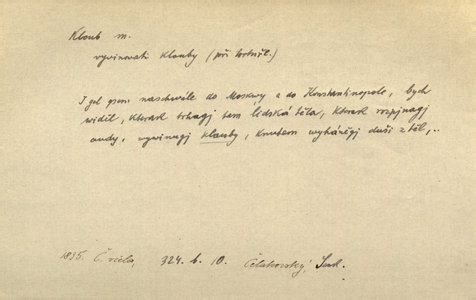 Kloub m.
vyvinovati klouby (při
I gel gsem naschwále do Moskwy a do Konstantinopole, bych
widěl, kterak trhagj tam lidská těla, kterak rozpjnagj
audy, vywinagj klauby, knutem wyhánějj duši z těl,..
1835. Č. včela, 324. b. 10. Čelakowský,